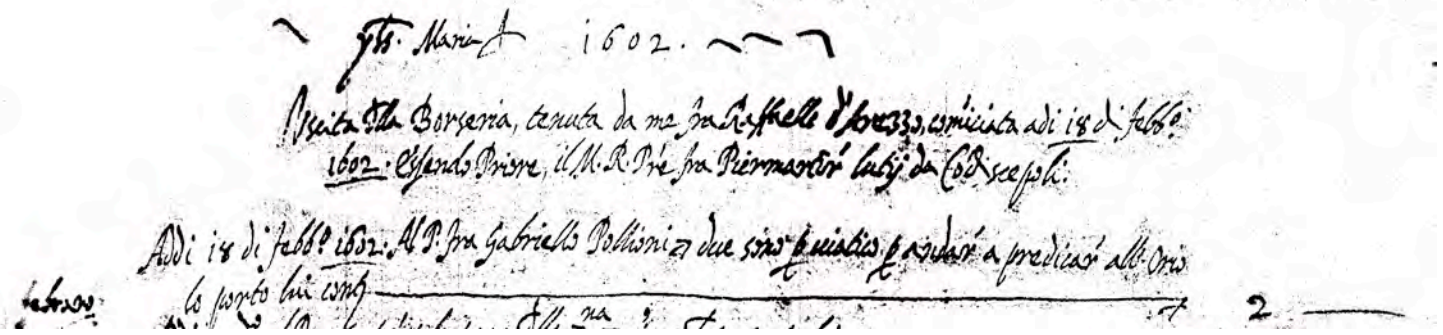 yhs. Maria 1602.
Uscita della Borseria, tenuta da me fra Raffaello d'Arezzo, comiciata adi 18 di febbº
1602. Essendo Priore, il M. R. Pre fra Piermartir lutij da
Addi 18 di febbº 1602. Al P. fra Gabriello Pollioni due sono p viatico p andar a predicar all Orio
lo porto lui
febraro
2